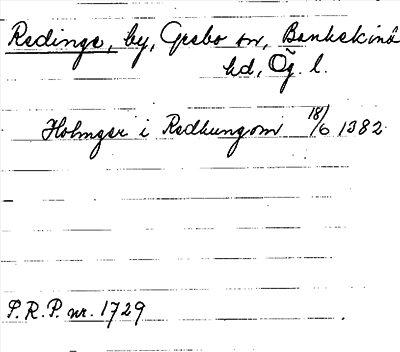 Redinge, by, Grebo sn, Bankekind
hd, Ög. l.
Holmger i Redhungom 18/6 1382
S.R.P. nr. 1729